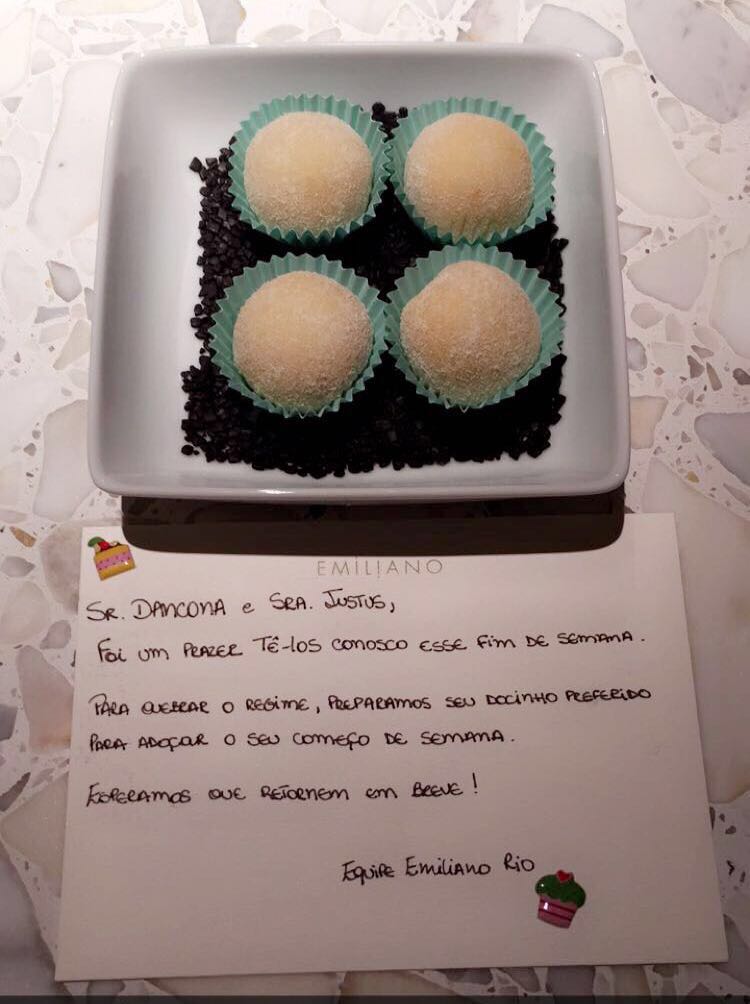 EMILIANO
SR. DANCONA e SRA. JUSTUS,
FOI UM PRAZER TÊ-LOS CONOSCO ESSE FIM DE SEMANA.
PARA QUEBRAR O REGIME, PREPARAMOS SEU DOCINHO PREFERIDO
PARA ADOÇAR O SEU COMEÇO DE SEMANA.
ESPERAMOS QUE RETORNEM EM BREVE!
EQUIPE EMILIANO RIO